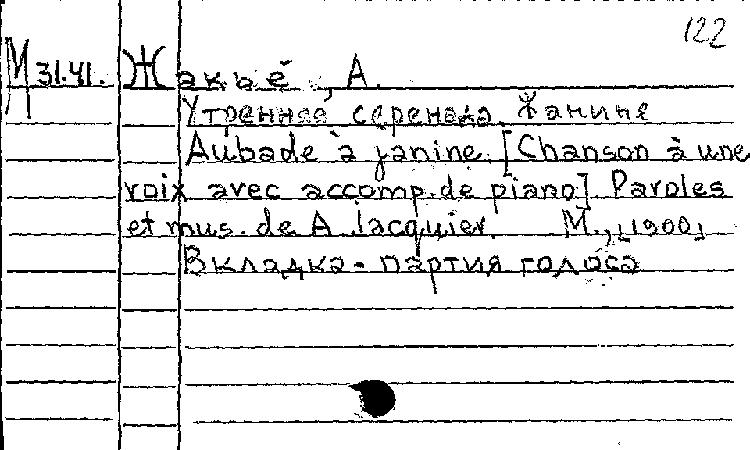 122
М 31.41. Жакье, А.
Утренняя серенада Жанине
Aubade à Janine. [Chanson à une
voix avec accomp. de piano]. Paroles
et mus. de A. Jacquier. М., [1900]
Вкладка - партия голоса